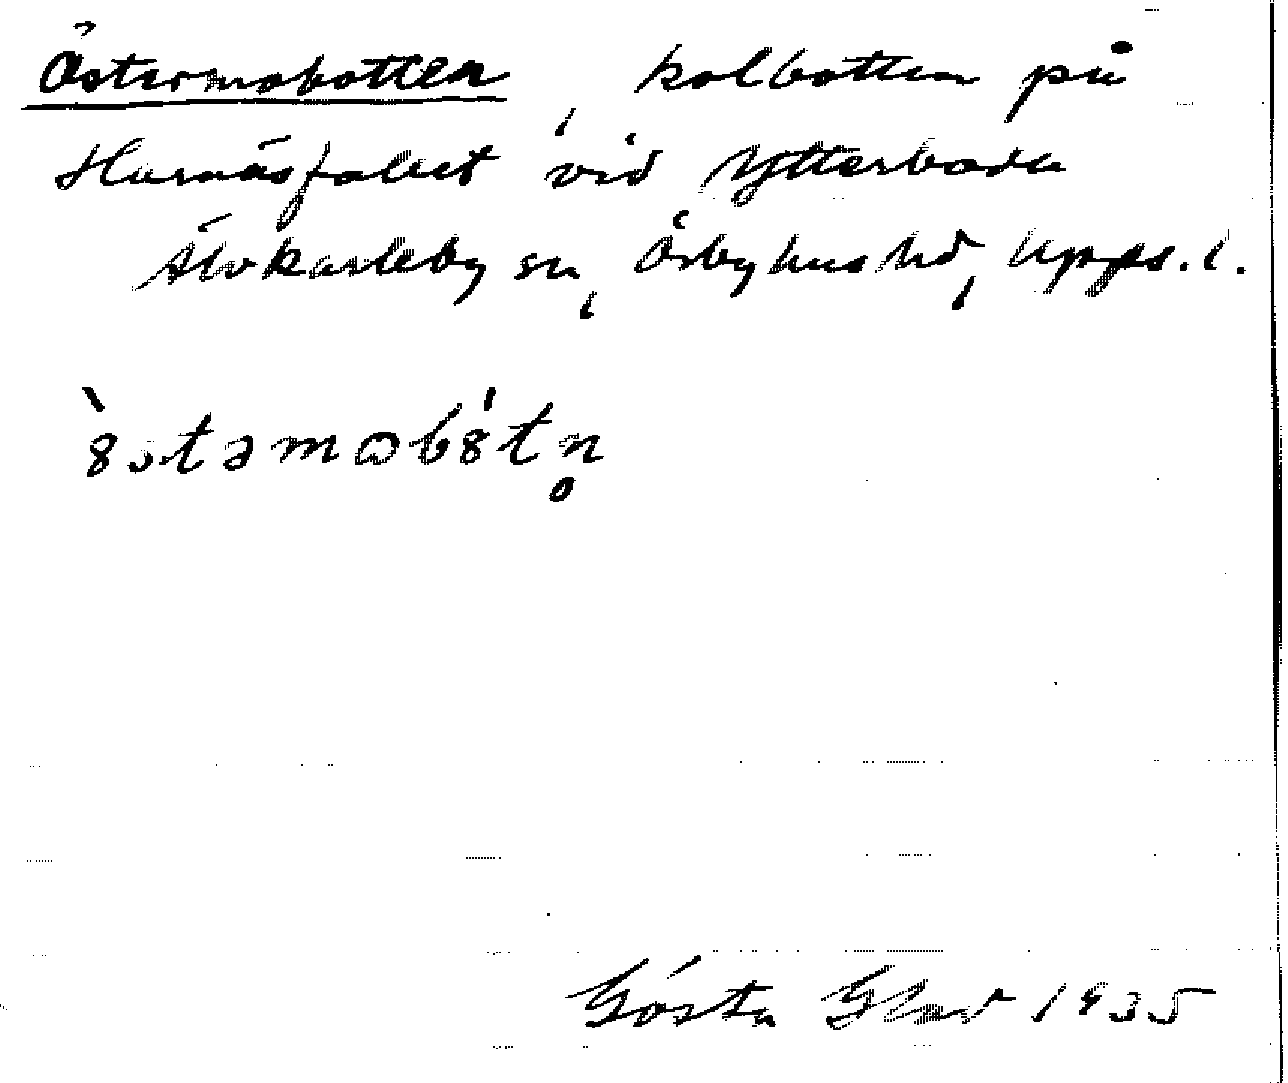 Östermobotten, kolbotten på
Harnäsfallet vid Ytterboda
Älvkarleby sn, Örbyhus hd, Upps. l.
Gösta Glad 1935